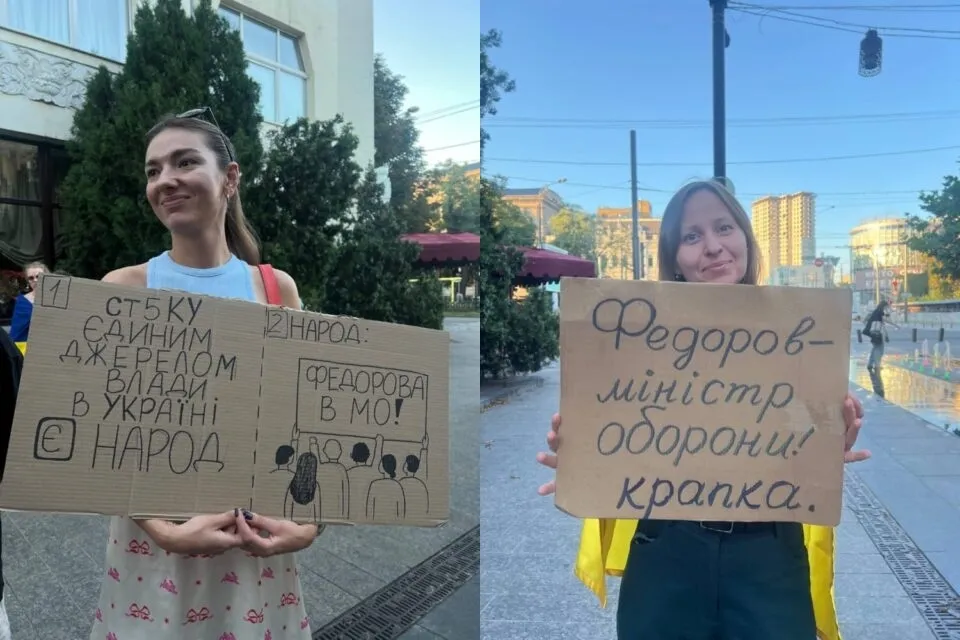 1
СТ5КУ
ЄДИНИМ
ДЖЕРЕЛОМ
ВЛАДИ
В УКРАЇНІ
Є НАРОД
2 НАРОД:
ФЕДОРОВА
В МО!
Федоров-
міністр
оборони!
крапка.